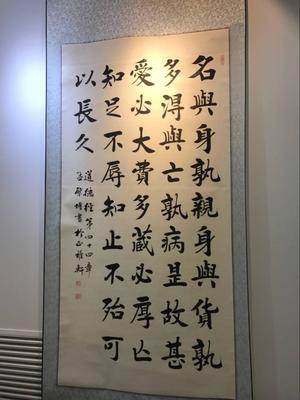 名與身孰親身與貨孰
多得與亡孰病是故甚
愛必大費多藏必厚亡
知足不辱知止不殆可
以長久
道德經第四十四章
書於正雅軒